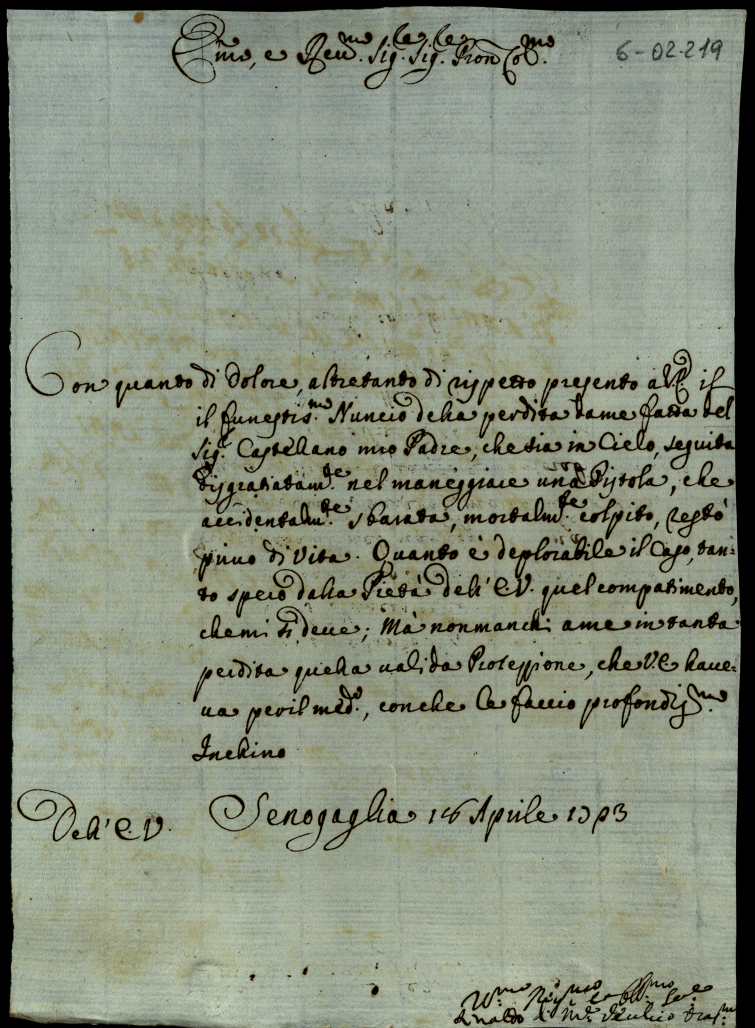 Em.mo, e Reu.mo Sig.re Sig.re Pron Co.mo
6-02-219
Con quanto di dolore, altretanto di rispetto presento a V.E. il
il funestis.mo Nuncio della perdita da me fatta del
Sig.r Castellano mio Padre, che sia in Cielo, seguita
disgratiatam.te nel maneggiare una Pistola, che
accidentalm.te sbarata, mortalm.te colpito, restò
priuo di Vita. Quanto è deplorabile il Caso, tan-
to spero dalla Pietà dell' E.V. quel compatimento,
che mi si deue; Mà non manchi a me in tanta
perdita quella ualida Protezzione, che V.E. haue-
ua per il med.o, con che le faccio profondis.mo
Inchino
Dell' E.V. Senogaglia 16 Aprile 1703